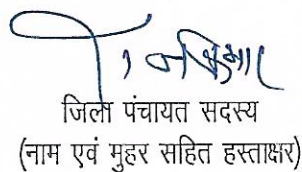 जिला पंचायत सदस्य
(नाम एवं मुहर सहित हस्ताक्षर)